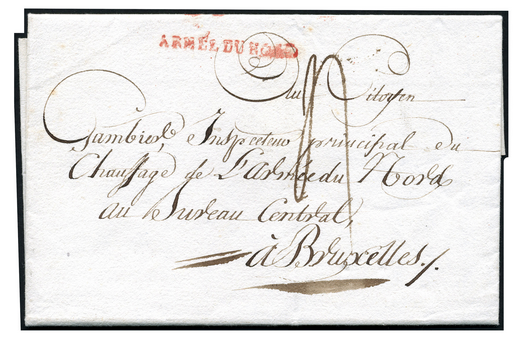 ARMÉE DU NORD
Au Citoyen
Gambier, Inspecteur principal du
Chauffage de L'Armée du Nord
au Bureau Central,
à Bruxelles./.